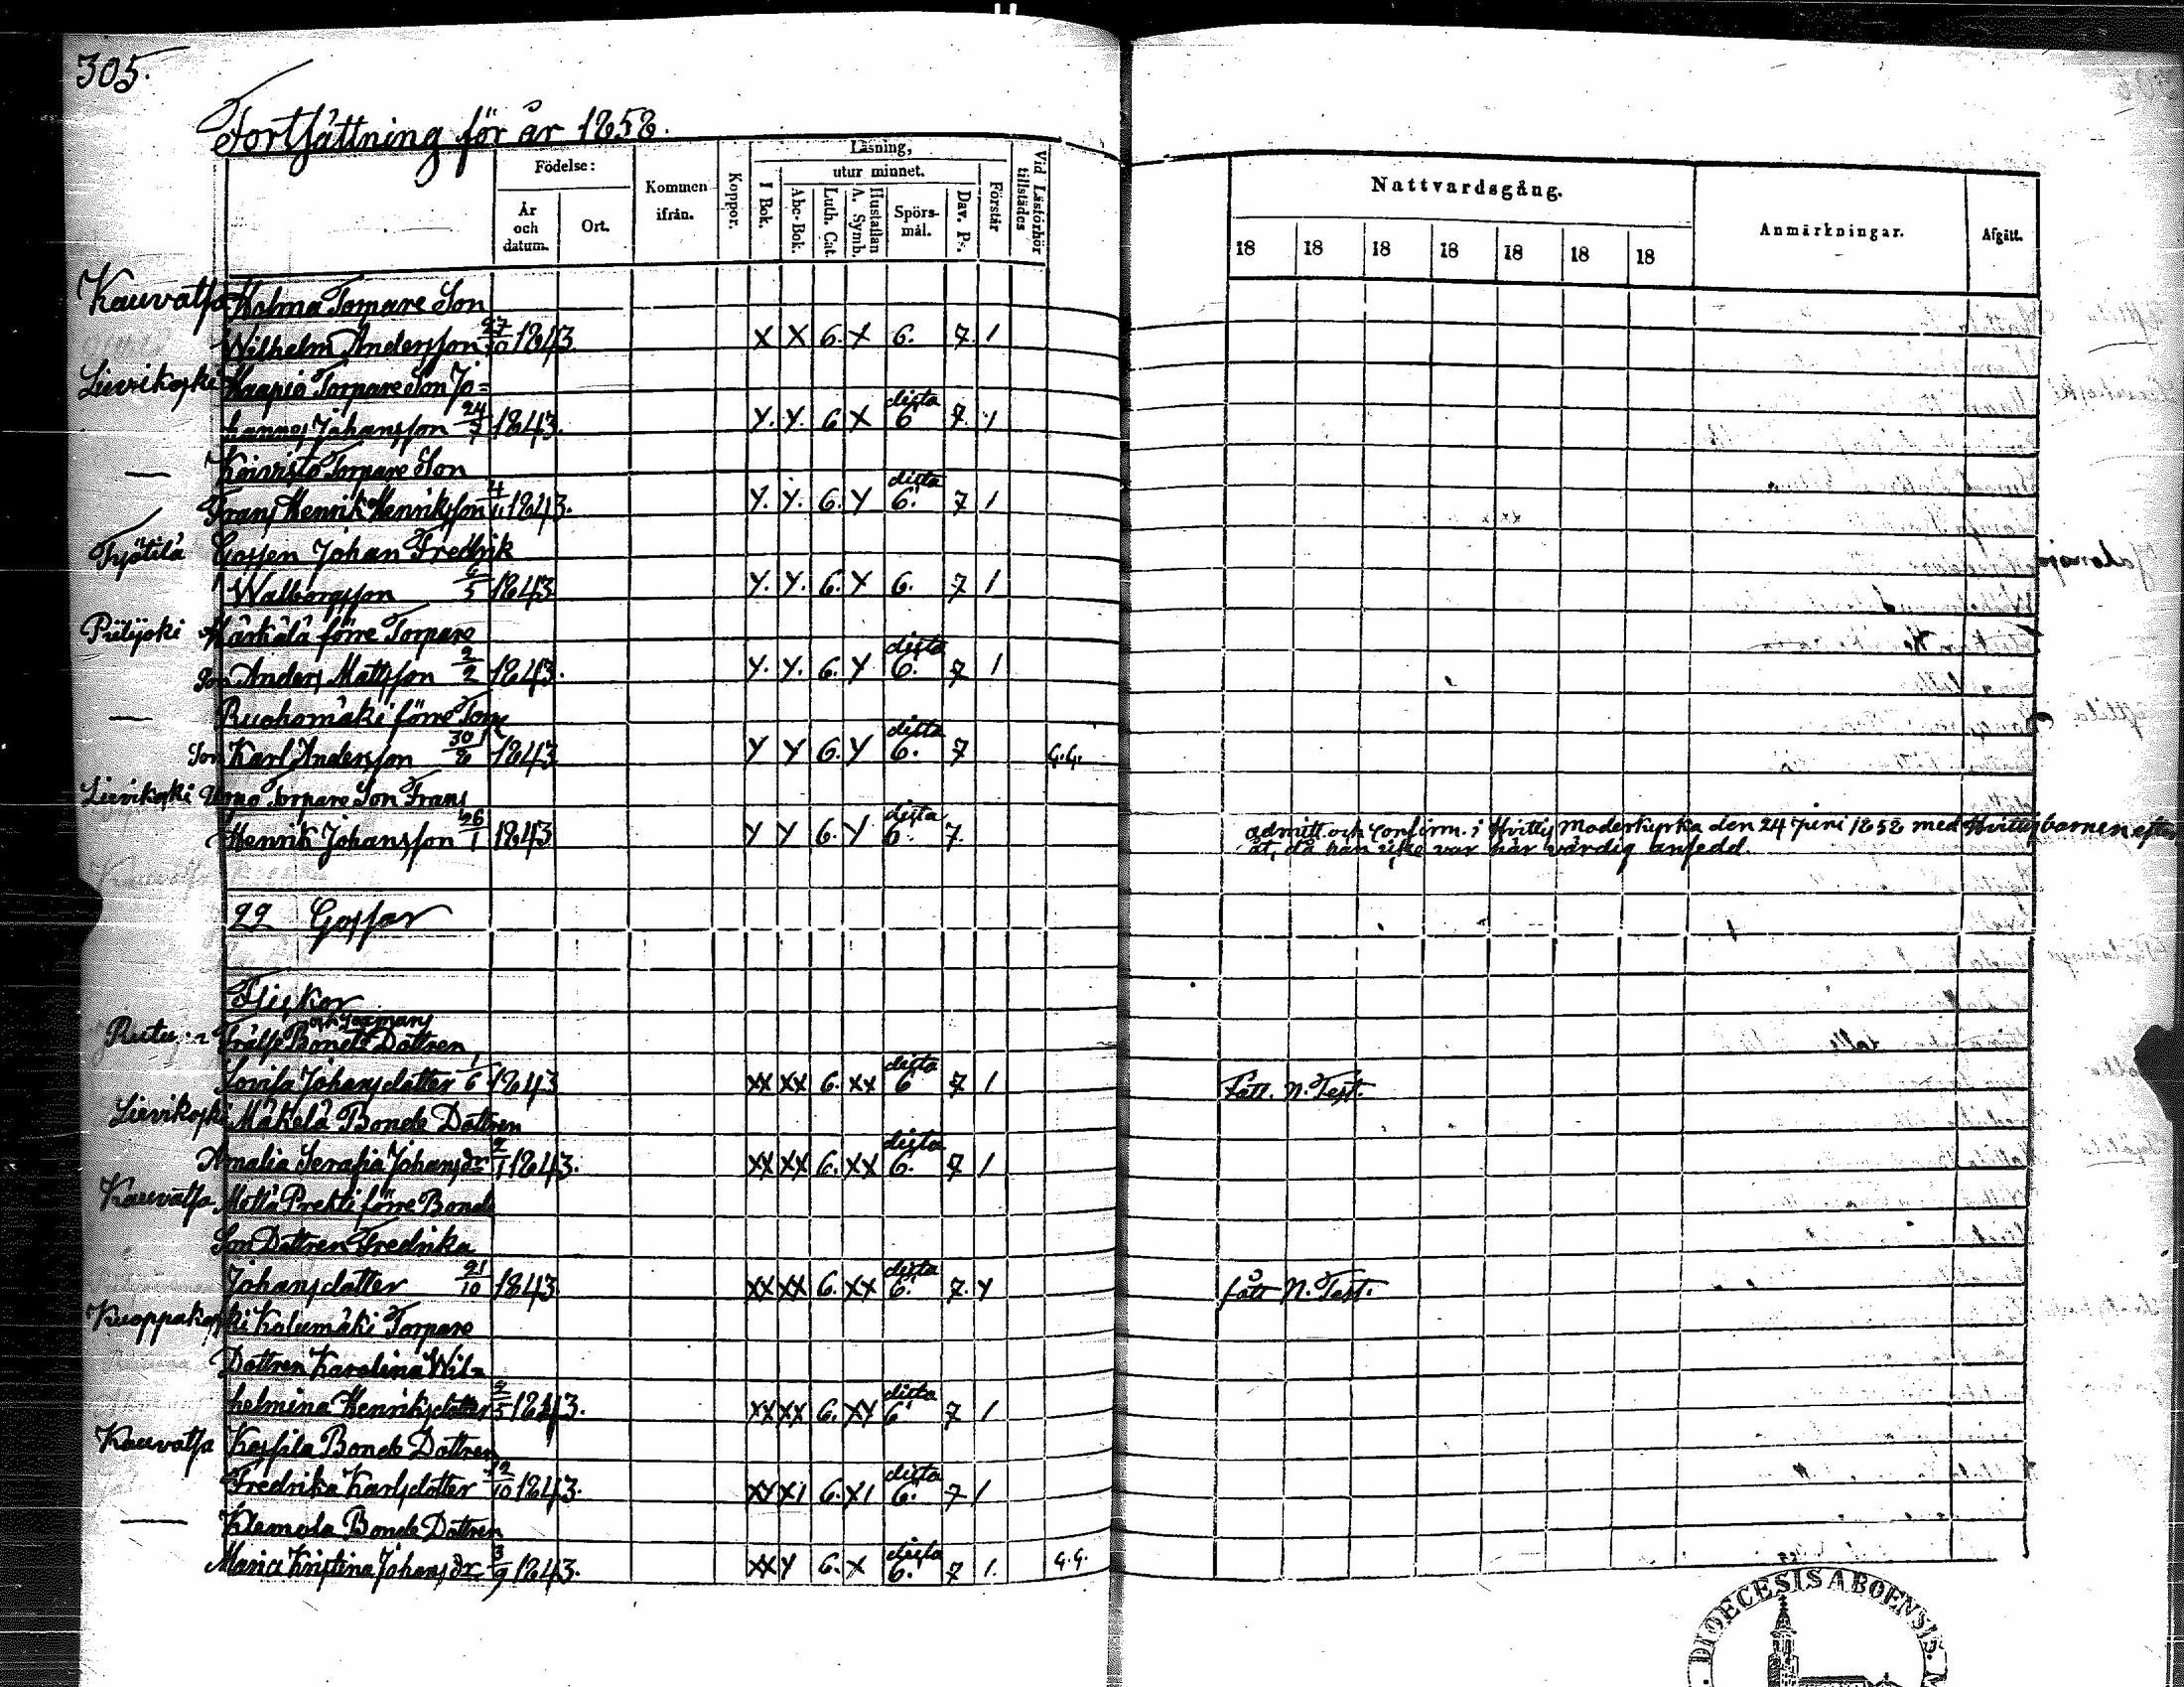 305.
Fortsättning för år 1858.
Födelse:
År och datum.
Ort.
Kommen ifrån.
Koppor.
Läsning,
I Bok.
utur minnet.
Abc-Bok.
Luth. Cat.
A. Symb.
Hustaflan
Spörsmål.
Dav. Ps.
Förstår
Vid Läsförhör tillstädes
Nattvardsgång.
18 18 18 18 18 18 18
Anmärkningar.
Afgått.
Kauvatsa Holma Torpare Son
Wilhelm Andersson 27/10 1843 X X 6. X 6. 7. 1
Lievikoski Haapio Torpare Son Jo=
hannes Johansson 24/7 1843. Y. Y. 6 X dista 6 7. 1
— Koivisto Torpare Son
Frans Henrik Henriksson 1843. Y. Y. 6. Y dista 6. 7 1
Työtilä Gossen Johan Fredrik
Walborgsson 6/5 1843 Y. Y. 6. Y 6. 7 1
Piilijoki Märkälä förre Torpare
Son Anders Mattsson 2/2 1843. Y. Y. 6. Y dista 6. 7 1
— Ruohomäki förre Torp
Son Karl Andersson 30/8 1843 Y Y 6. Y dista 6. 7 G.G.
Lievikoski Torpare Son Frans
Henrik Johansson 26/1 1843 Y Y 6. Y dista 6. 7. admitt. och Confirm. i Hvittis Moderkyrka den 24 Juni 1858 med Hvittisbarnen efter
åt, då han icke var här värdig ansedd.
22 Gossar
Flickor
och
Frälse Bonde Dottren
Lovisa Johansdotter 1/6 1843 XX XX 6. XX dista 6 7 1 Fått. N. Test.
Lievikoski Mäkelä Bonde Dottren
Amalia Serafia Johansdr 2/1 1843. XX XX 6. XX dista 6. 7 1
Kauvatsa Prehti förre Bonde
Son Dottren Fredrika
Johansdotter 21/10 1843 XX XX 6. XX dista 6. 7. Y fått N. Test.
Kuoppakoski Kalumäki Torpare
Dottren Karolina Wil=
helmina Henriksdotter 1843. XX XX 6. XY dista 6 7 1
Kauvatsa Kassila Bonde Dottren
Fredrika Karlsdotter 12/10 1843. XY X1 6. X1 dista 6. 7 1
— Klemola Bonde Dottren
Maria Kristina Johansdr 3/9 1843. XX Y 6. X dista 6. 7 1. G.G.
DIOECESIS ABOENSIS.